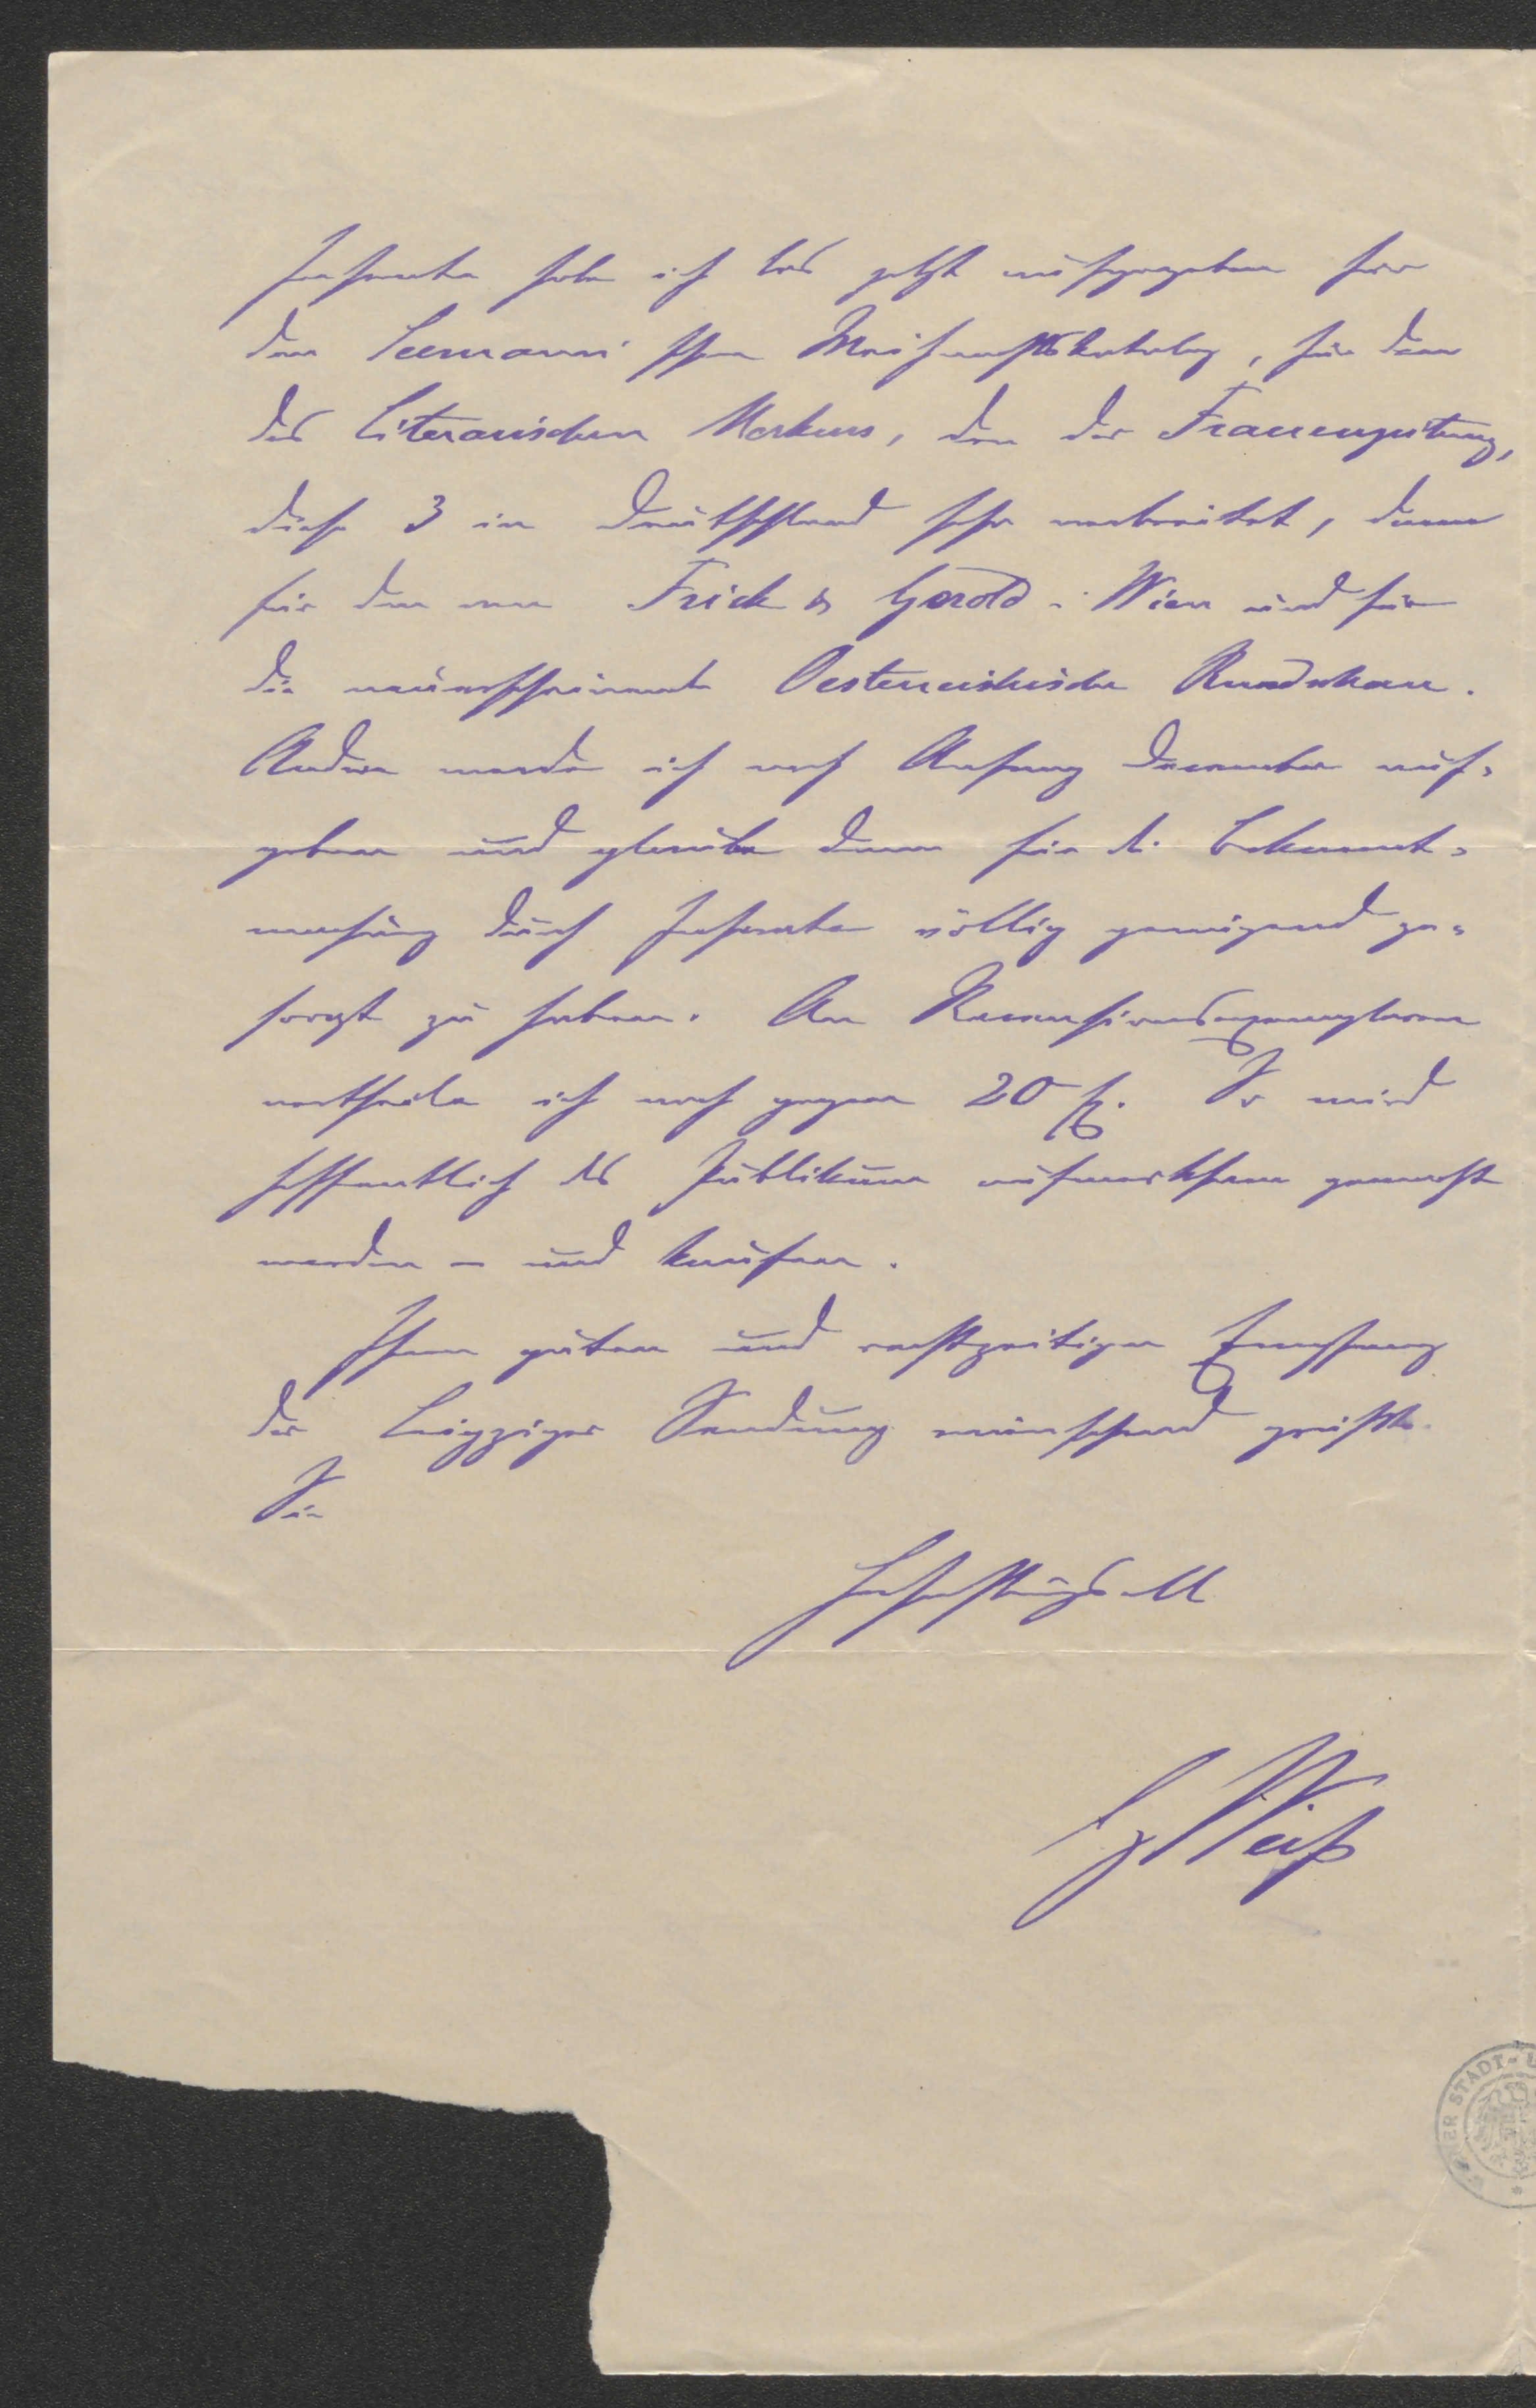 Inserate habe ich bis jetzt aufgegeben für
den Seemann'schen Weihnachtskatalog, für den
des Literarischen Merkurs, den der Frauenzeitung,
diese 3 in Deutschland sehr verbreitet, dann
für den von Frick & Gerold i. Wien und für
die neuerscheinende Oesterreichische Rundschau.
Andere werde ich noch Anfang December auf-
geben und glaube dann für d. Bekannt-
machung durch Inserate völlig genügend ge-
sorgt zu haben. An Recensionsexemplaren
vertheile ich noch gegen 20 So wird
hoffentlich das Publikum aufmerksam gemacht
werden – und kaufen.
Ihnen guten und rechtzeitigen Empfang
der Leipziger Sendung wünschend grüßt
Sie
hochachtungsvoll
Weiß
ER STADT-